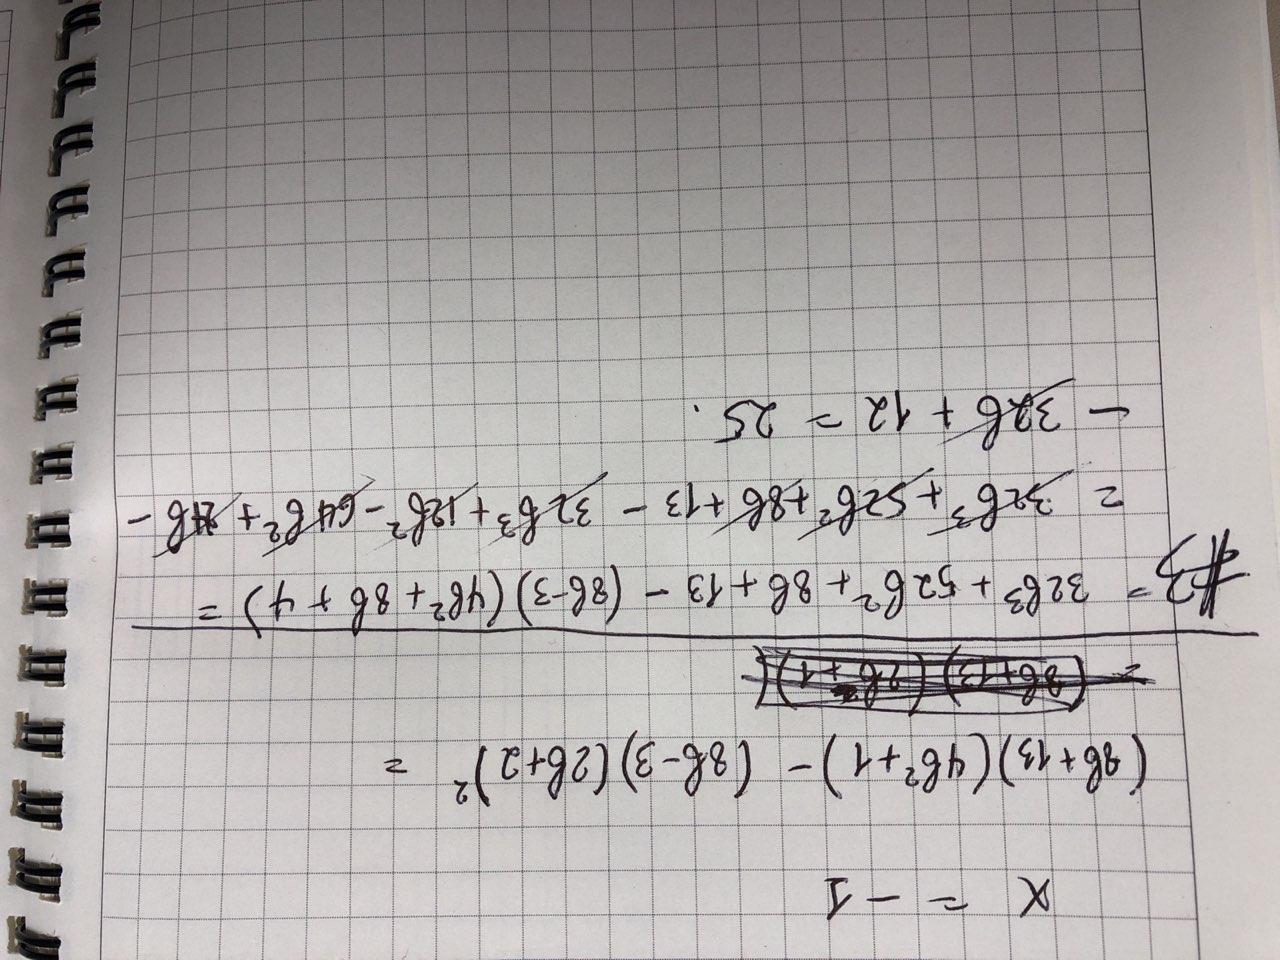 x = -1
(8b+13)(4b²+1) - (8b-3)(2b+2)² =
= (8b+13)(2b+1)(
#3 = 32b³ + 52b² + 8b + 13 - (8b-3)(4b² + 8b + 4) =
= 32b³ + 52b² + 8b + 13 - 32b³ + 12b² - 64b² + 24b -
- 32b + 12 = 25.